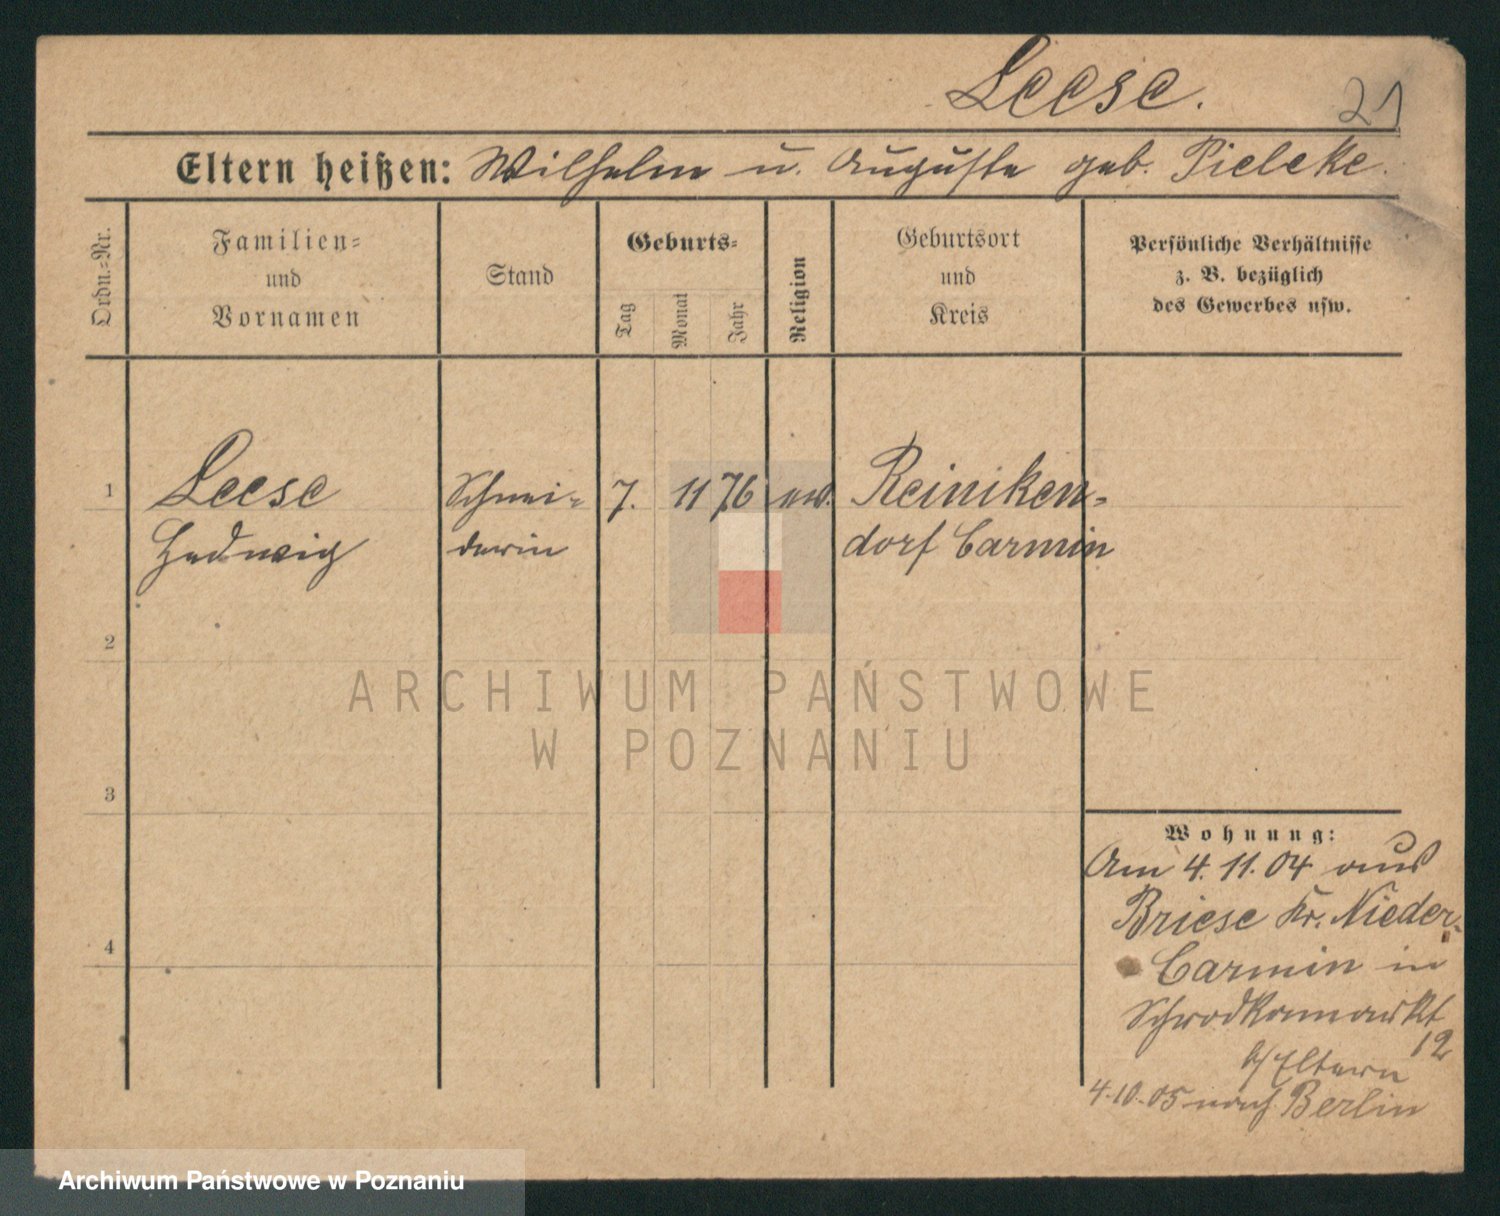 Leese.
21
Eltern heißen: Wilhelm u. Auguste geb. Pieleke.
Ordn.-Nr.
Familien-
und
Vornamen
Stand
Geburts-
Tag
Monat
Jahr
Religion
Geburtsort
und
Kreis
Persönliche Verhältnisse
z. B. bezüglich
des Gewerbes usw.
1
Leese
Hedwig
Schnei-
derin
7.
11
76
ev.
Reiniken-
dorf Carmin
2
3
4
Wohnung:
Am 4.11.04 aus
Briese Kr. Nieder-
Carmin in
Schrodkamarkt
12
b/ Eltern
4.10.05 nach Berlin
ARCHIWUM PAŃSTWOWE
W POZNANIU
Archiwum Państwowe w Poznaniu